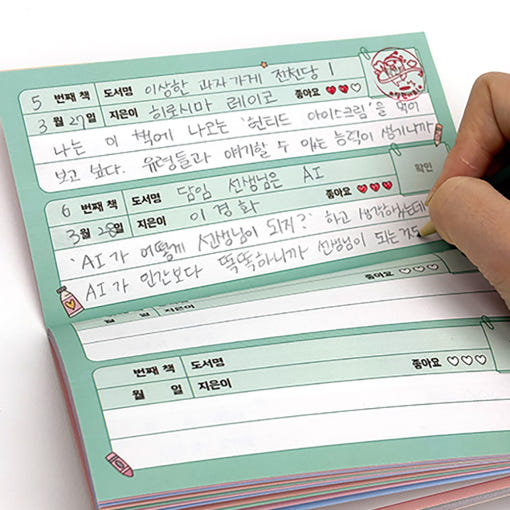 5 번째 책 도서명 이상한 과자 가게 전천당 1
3 월 27 일 지은이 히로시마 레이코 좋아요
나는 이 책에 나오는 '헌티드 아이스크림'을 먹어
보고 싶다. 유령들과 얘기할 수 있는 능력이 생기니까
6 번째 책 도서명 담임 선생님은 AI 확인
3월 28일 지은이 이경화 좋아요
'AI가 어떻게 선생님이 되지?' 하고 생각하는데
AI가 인간보다 똑똑하니까 선생님이 되는 것도
월 일 지은이 좋아요
번째 책 도서명 좋아요
월 일 지은이